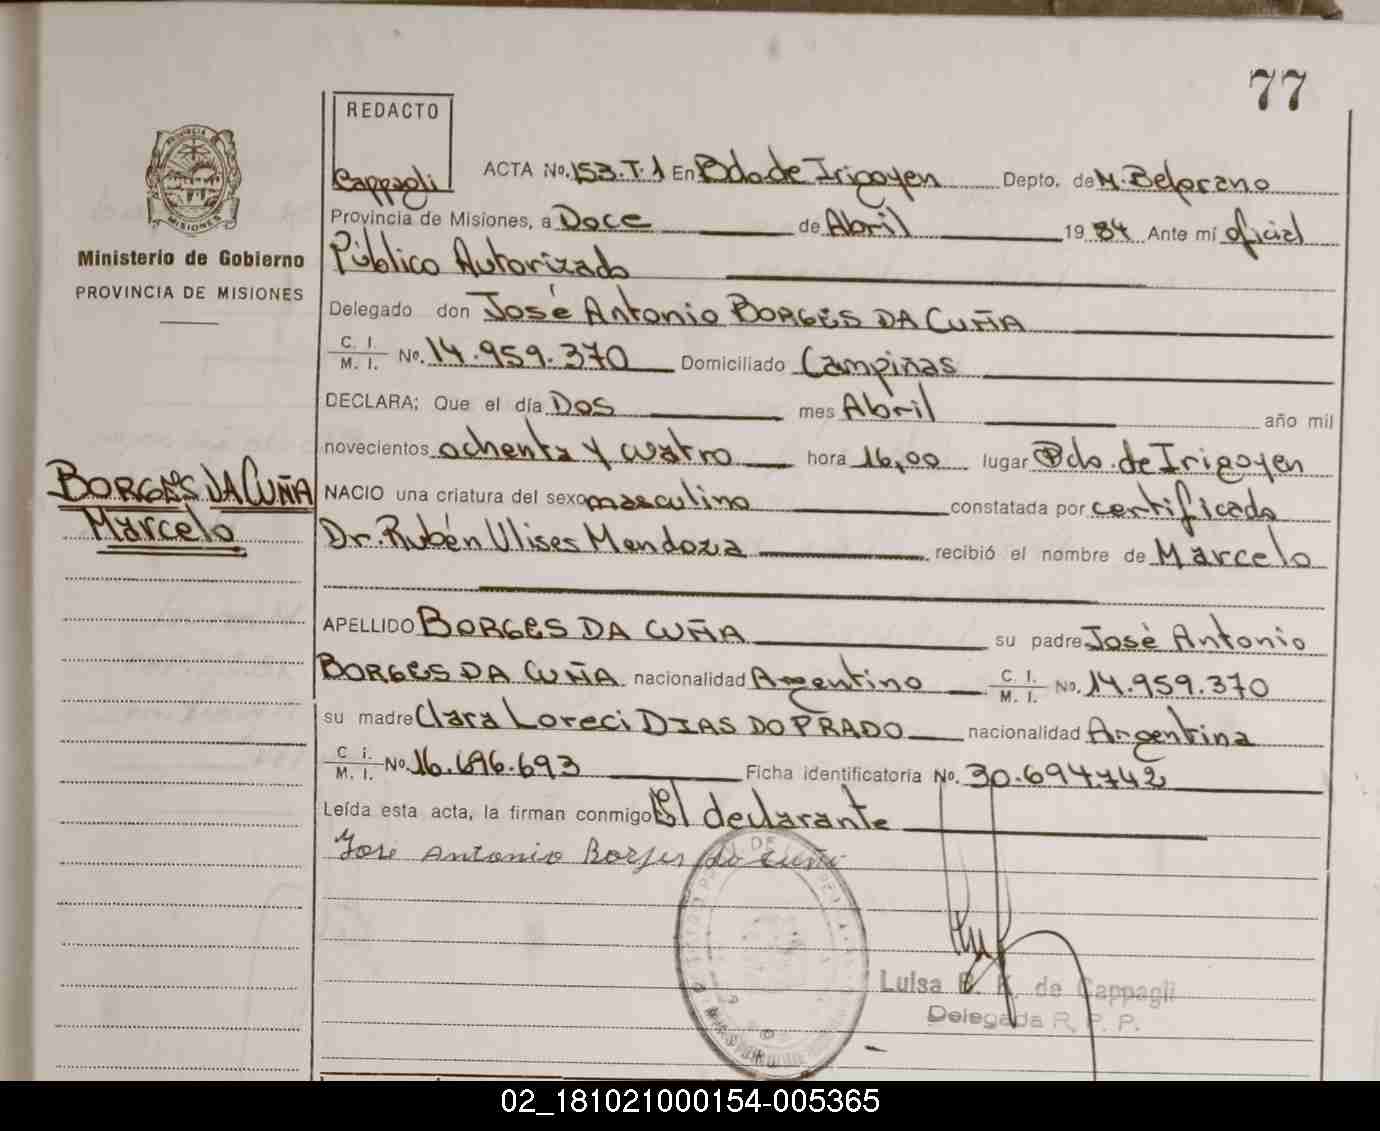 77
REDACTO
Cappagli
ACTA No. 153.T.1 En Bdo de Irigoyen Depto. de M. Belgrano
Provincia de Misiones, a Doce de Abril 1984 Ante mi oficial
Público Autorizado
Delegado don José Antonio BORGES DA CUÑA
C. I. M. I. No. 14.959.370 Domiciliado Campiñas
DECLARA; Que el día Dos mes Abril año mil
novecientos ochenta y cuatro hora 16,00 lugar Bdo. de Irigoyen
NACIO una criatura del sexo masculino constatada por certificado
Dr. Rubén Ulises Mendoza recibió el nombre de Marcelo
APELLIDO BORGES DA CUÑA su padre José Antonio
BORGES DA CUÑA nacionalidad Argentino C. I. M. I. No. 14.959.370
su madre Clara Loreci DIAS DO PRADO nacionalidad Argentina
C i. M. I. No. 16.696.693 Ficha identificatoria No. 30.694.742
Leída esta acta, la firman conmigo El declarante
José Antonio Borges da Cuña
Luisa E. K. de Cappagli
Delegada R. P. P.
PROVINCIA DE
MISIONES
Ministerio de Gobierno
PROVINCIA DE MISIONES
BORGES DA CUÑA
Marcelo
02_181021000154-005365